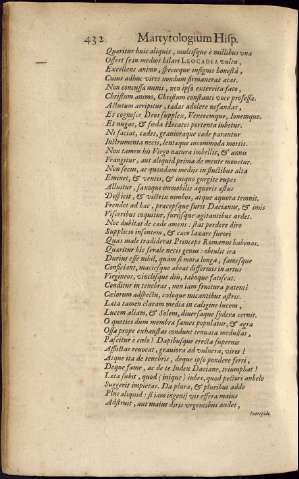 432 Martyrologium Hisp.
Quæritur huic aliquis, multisque è millibus una
Offert se in medios hilari LEOCADIA vultu,
Excellens animo, specieque insignis honesta,
Cuius adhuc vires nondum firmaverat ætas.
Non concussa minis, nec ipso exterrita fato,
Christum animo, Christum constanti voce professa.
Ablutum arripitur, tædas adolere nefandas,
Et cognosce Deos supplex, Veneremque, Iovemque,
Et nugas, & fœda Hecates portenta iubetur.
Ni faciat, tædas, gravioraque cædi parantur
Instrumenta necis, lentæque incommoda mortis.
Non tamen his Virgo natura imbellis, & annis
Frangitur, aut aliquid prima de mente movetur.
Non secus, ac quondam mediis in fluctibus alta
Eminet, & ventis, & iniquo gurgite rupes
Alluitur, saxoque immobilis aquoris æstus
Despicit, & victrix undas, atque æquora
Frendet ad hæc, præcepsque furit Dacianus, & imis
Visceribus coquitur, furiisque agitantibus ardet.
Nec dubitat de cæde animi: stat perdere diro
Supplicio insontem, & cæco laxare furori
Quas male tradiderat Princeps Romanus habenas.
Quæritur his sævale necis genus: obtulit ira
Durius esse nihil, quam si mora longa, famesque
Conficiant, maciesque abeat difformis in artus
Virgineos, vinclisque diu, taboque satiscat.
Conditur in tenebras, non iam fruitura patenti
Cælorum adspectu, cæloque micantibus astris.
Læta tamen claram media in caligine lucem,
Lucem aliam, & Solem, diversaque sydera cernit.
O quoties dum membra fames populatur, & ægra
Ossa prope exhaustas condunt tenuata medullas,
Pascitur e cœlo! Dapibusque erecta supernis
Afflictas revocat, graviora ad vulnera, vires!
Atque ita de tenebris, deque ipso pondere ferri,
Deque fame, ac de te Index Daciane, triumphat!
Læta subit, quod (inique) iubes, quod pectus anhelo
Suggerit impietas. Da plura, & pluribus adde
Plus aliquid: si iam ingenii vis effera maius
Adstruit, aut maius diris urgentibus audet,
Intrepida